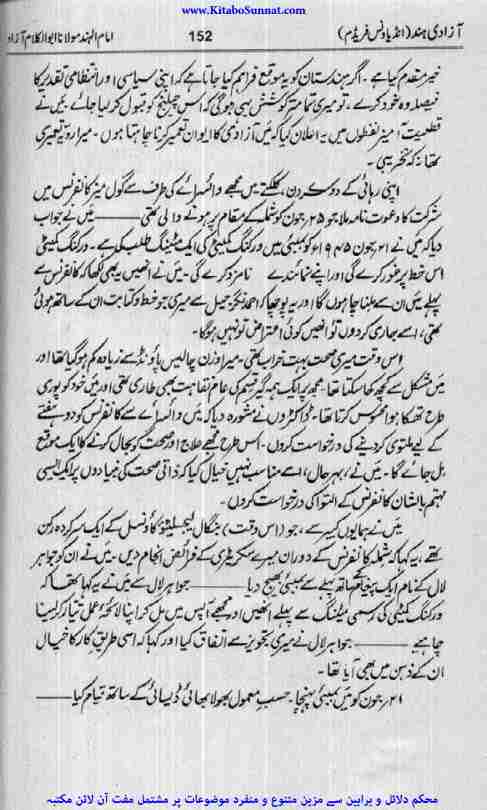 www.KitaboSunnat.com
آزادی ہند (انڈیا ونس فریڈم) 152 امام الہند مولانا ابوالکلام آزاد
خیر مقدم کیا ہے۔ اگر ہندستان کو یہ موقع فراہم کیا جاتا ہے کہ اپنی سیاسی اور انتظامی تقدیر کا
فیصلہ وہ خود کرے، تو میری تمام تر کوشش یہی ہوگی کہ اس چیلنج کو قبول کر لیا جائے۔ میں نے
قطعیت آمیز لفظوں میں یہ اعلان کیا کہ میں آزادی کا ایوان تعمیر کرنا چاہتا ہوں۔ میرا رویہ تعمیری
تھا نہ کہ تخریبی۔
اپنی رہائی کے دوسرے دن، کلکتے میں مجھے وائسرائے کی طرف سے گول میز کانفرنس میں
شرکت کا دعوت نامہ ملا جو ۲۵؍ جون کو شملہ کے مقام پر ہونے والی تھی ——— میں نے جواب
دیا کہ میں نے ۲۱؍ جون ۱۹۴۵ء کو بمبئی میں ورکنگ کمیٹی کی ایک میٹنگ طلب کی ہے۔ ورکنگ کمیٹی
اس خط پر غور کرے گی اور اپنے نمائندے نامزد کرے گی۔ میں نے انھیں یہ بھی لکھا کہ کانفرنس سے
پہلے میں ان سے ملنا چاہوں گا اور یہ پوچھا کہ احمد نگر جیل سے میری جو خط و کتابت ان کے ساتھ ہوئی
تھی، اسے جاری کر دوں تو انھیں کوئی اعتراض تو نہیں ہوگا۔
اس وقت میری صحت بہت خراب تھی۔ میرا وزن چالیس پاؤنڈ سے زیادہ کم ہوگیا تھا اور
میں مشکل سے کچھ کھا سکتا تھا۔ مجھ پر ایک ہمہ گیر قسم کی عام نقاہت بھی طاری تھی اور میں خود کو پوری
طرح تھکا ہوا محسوس کرتا تھا۔ ڈاکٹروں نے مشورہ دیا کہ میں وائسرائے سے کانفرنس کو دو ہفتے
کے لیے ملتوی کر دینے کی درخواست کروں۔ اس طرح مجھے علاج اور صحت کو بحال کرنے کا ایک موقع
مل جائے گا۔ میں نے، بہر حال، اسے مناسب نہیں خیال کیا کہ ذاتی صحت کی بنیادوں پر ایک ایسی
مہتم بالشان کانفرنس کے التوا کی درخواست کروں۔
میں نے ہمایوں کبیر سے، جو (اس وقت) بنگال لیجسلیٹو کاؤنسل کے ایک سرکردہ رکن
تھے، یہ کہا کہ شملہ کانفرنس کے دوران میرے سکریٹری کے فرائض انجام دیں۔ میں نے ان کو جواہر
لال کے نام ایک پیغام کے ساتھ پہلے سے بمبئی بھیج دیا ——— جواہر لال سے میں نے یہ کہا تھا کہ
ورکنگ کمیٹی کی رسمی میٹنگ سے پہلے انھیں اور مجھے آپس میں مل کر اپنا لائحۂ عمل تیار کر لینا
چاہیے ——— جواہر لال نے میری تجویز سے اتفاق کیا اور کہا کہ اسی طریق کار کا خیال
ان کے ذہن میں بھی آیا تھا۔
۲۱؍ جون کو میں بمبئی پہنچا۔ حسب معمول بھولا بھائی ڈیسائی کے ساتھ قیام کیا ———
محکم دلائل و براہین سے مزین متنوع و منفرد موضوعات پر مشتمل مفت آن لائن مکتبہ